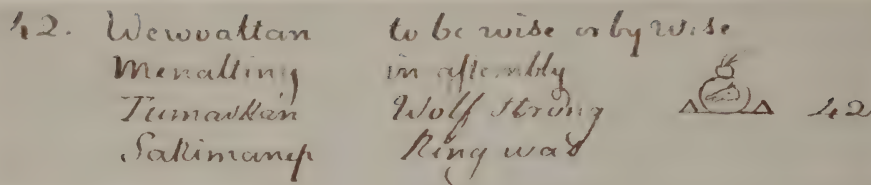 42. Wewoattan to be wise or by wise
Menalting in assembly
Tumaskan Wolf strong 42
Sakimanep King was